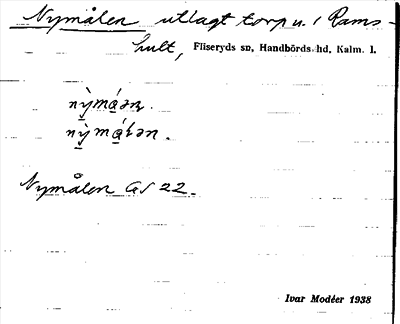 Nymålen utlagt torp u. / Rams-
hult, Fliseryds sn, Handbörds hd, Kalm. l.
nỳmá̱ən.
nỳmá̱lən.
Nymålen GS 22.
Ivar Modéer 1938